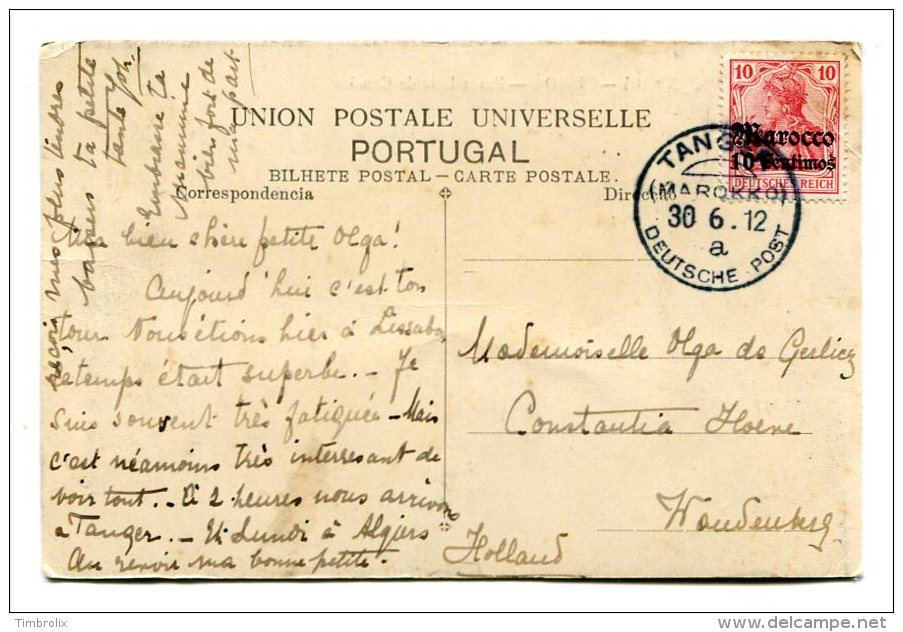 UNION POSTALE UNIVERSELLE
PORTUGAL
BILHETE POSTAL — CARTE POSTALE.
Correspondencia
Direcção
10 10
Marocco
10 Centimos
DEUTSCHES REICH
TANGER
(MAROKKO)
30 6.12
a
DEUTSCHE POST
Ma bien chère petite Olga!
Aujourd'hui c'est ton
tour Nous étions hier à Lissabo
le temps était superbe. — Je
suis souvent très fatiguée — Mais
c'est néamoins très interresant de
voir tout. — à 2 heures nous arrivons
a Tanger. — Et Lundi à Algiers
Au revoir ma bonne petite.
reçois mes plus tendres
baisers ta petite
tante
Embrasse ta
Maman
bien fort de
ma part
Mademoiselle Olga de Gerlicz
Constantia Hoeve
Woudenberg
Holland
Timbrolix
www.delcampe.net